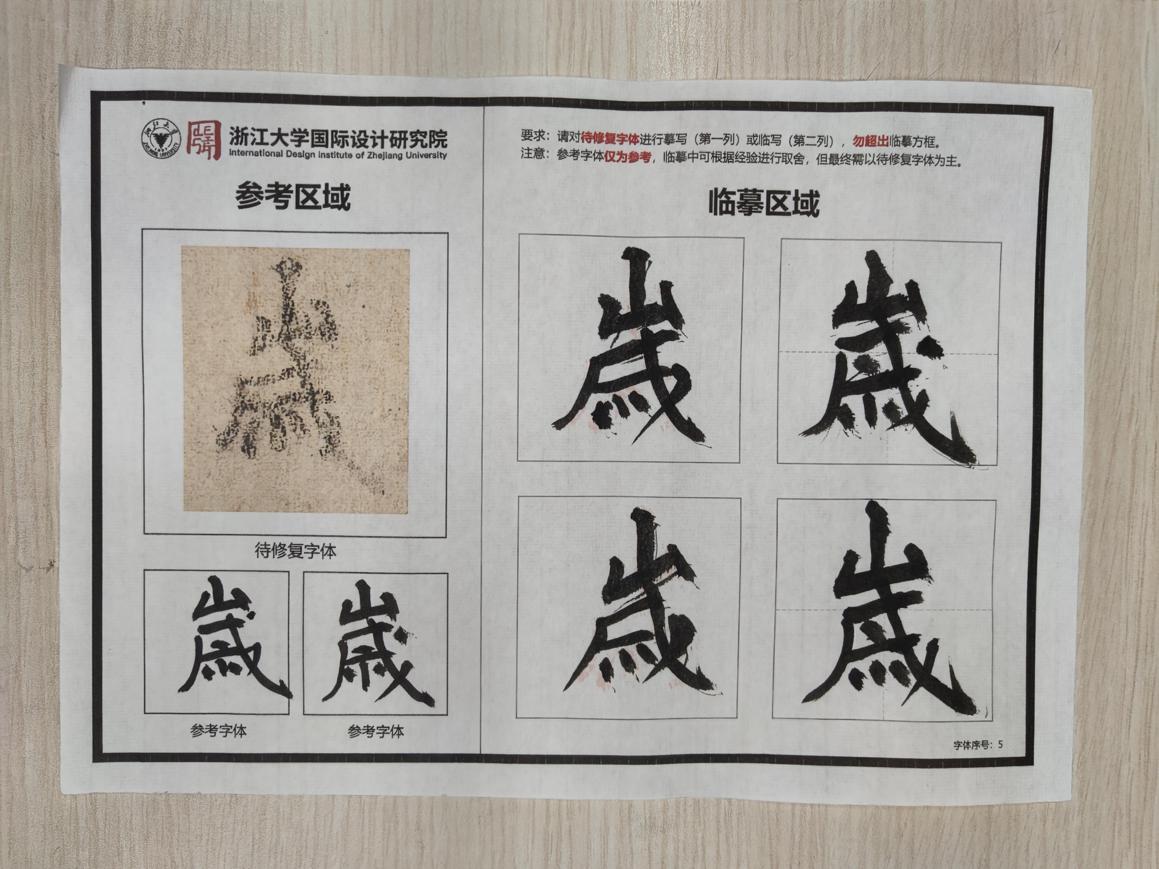 浙江大学国际设计研究院
International Design Institute of Zhejiang University
参考区域
待修复字体
歲
歲
参考字体
参考字体
要求：请对待修复字体进行摹写（第一列）或临写（第二列），勿超出临摹方框。
注意：参考字体仅为参考，临摹中可根据经验进行取舍，但最终需以待修复字体为主。
临摹区域
歲
歲
歲
歲
字体序号：5